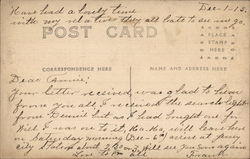 Have had a lovely time Dec-1-13.
with my relatives they all hate to see me go
POST CARD
PLACE
STAMP
HERE
CORRESPONDENCE HERE NAME AND ADDRESS HERE
Dear Annie:
Your letter received, was glad to hear
from you all. I received the searchlight
from Dennie but as I had bought one for
Will I was on to it, Ha. Ha. will leave here
on Saturday morning Dec-6th arrive at Jersey
City about 2 will see you soon again
Love to all Frank